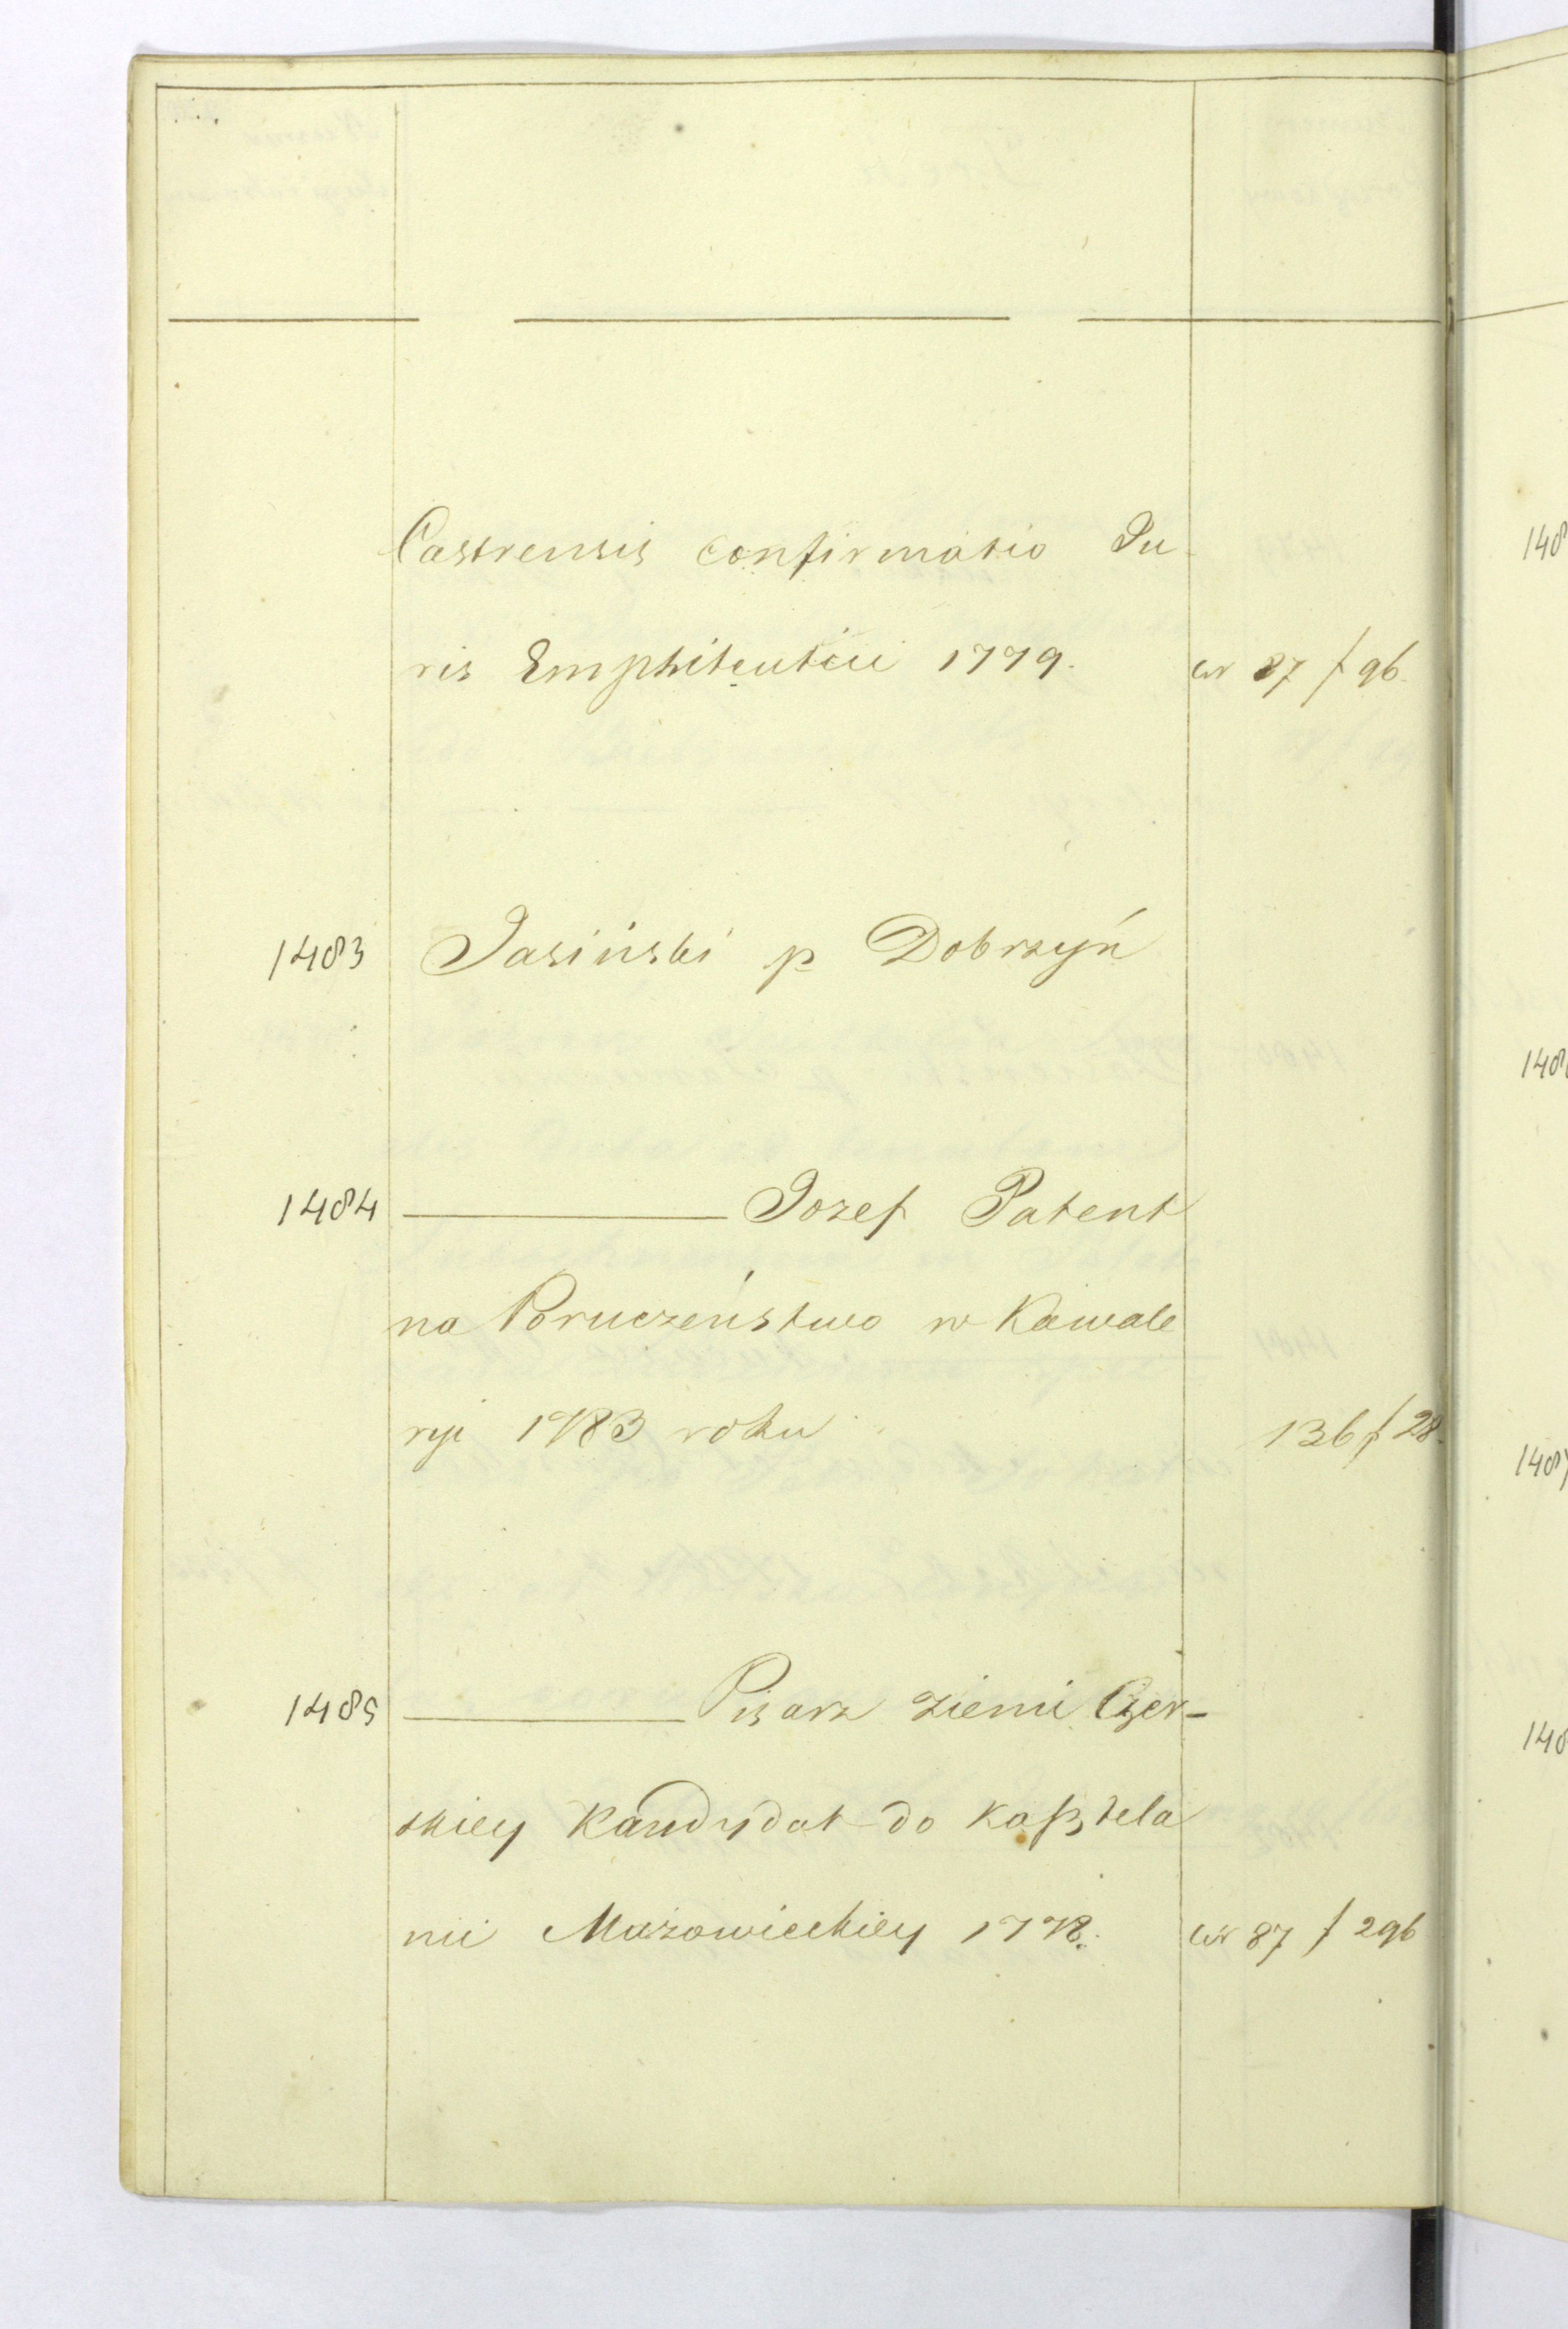 Castrensis confirmatio Ju-
ris Emphiteutici 1779. 87 f 96.
1483 Jasiński p Dobrzyń
1484 Jozef Patent
na Poruczeństwo w Kawale
ryi 1783 roku 136 f 28.
1485 Pisarz ziemi Czer-
skiey Kandydat do Kasztela
nii Mazowieckiey 1778. 87 f 296